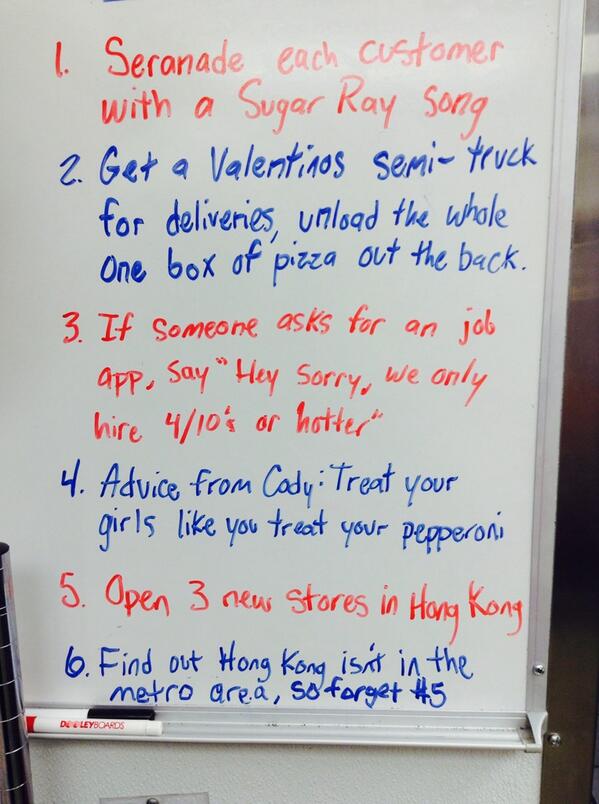 1. Seranade each customer
with a Sugar Ray song
2. Get a Valentinos semi-truck
for deliveries, unload the whole
one box of pizza out the back.
3. If someone asks for an job
app, say "Hey sorry, we only
hire 4/10's or hotter"
4. Advice from Cody: Treat your
girls like you treat your pepperoni
5. Open 3 new stores in Hong Kong
6. Find out Hong Kong isn't in the
metro area, so forget #5
DOOLEYBOARDS